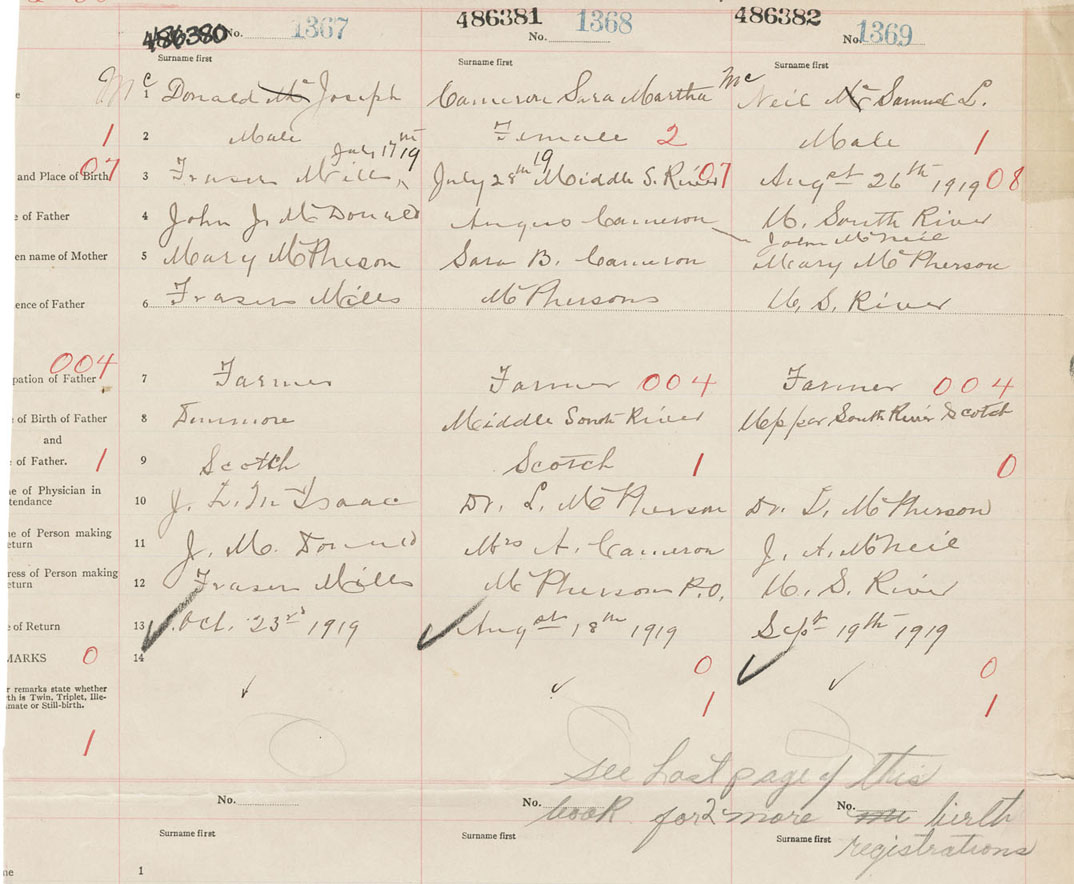 486380 No. 1367 486381 No. 1368 486382 No. 1369
Surname first Surname first Surname first
Mc 1 Donald Mc Joseph Cameron Sara Martha Mc Neil Mc Samuel L.
1 2 Male Female 2 Male 1
July 17th 19 19
and Place of Birth 07 3 Frasers Mills July 28th Middle S. River 07 Augst 26th 1919 08
e of Father 4 John J. McDonald Angus Cameron U. South River
John McNeil
en name of Mother 5 Mary McPherson Sara B. Cameron Mary McPherson
ence of Father 6 Frasers Mills McPhersons U. S. River
004
pation of Father 7 Farmer Farmer 004 Farmer 004
of Birth of Father 8 Dunmore Middle South River Upper South River Scotch
and
of Father. 1 9 Scotch Scotch 1 0
e of Physician in
tendance 10 J. L. McIsaac Dr. L. McPherson Dr. L. McPherson
ne of Person making
eturn 11 J. McDonald Mrs A. Cameron J. A. McNeil
ress of Person making
eturn 12 Frasers Mills McPhersons P.O. U. S. River
e of Return 13 Oct. 23rd 1919 Augst 18th 1919 Sept 19th 1919
MARKS 0 14 0 0
r remarks state whether
th is Twin, Triplet, Ille-
mate or Still-birth. 1 1
1
See Last page of this
No. No. No.
book for 2 more birth
Surname first Surname first Surname first
registrations
ne 1